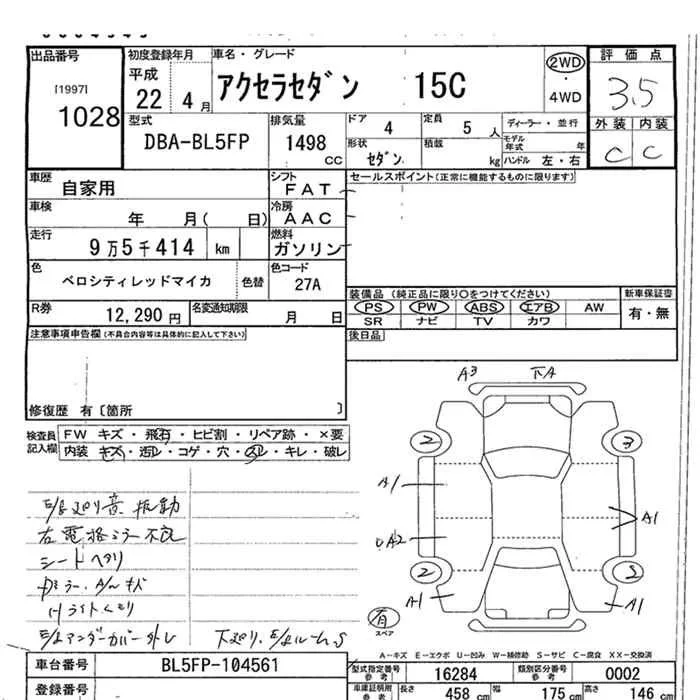 出品番号
[1997]
1028
初度登録年月
平成
22 4月
車名・グレード
アクセラセダン 15C
2WD
4WD
評価点
3.5
外装 内装
C C
型式
DBA-BL5FP
排気量
1498
CC
ドア
4
定員
5 人
形状
セダン
積載
kg
ディーラー・並行
モデル
年式 年
ハンドル 左・右
車歴
自家用
シフト
FAT
セールスポイント(正常に機能するものに限ります)
車検
年 月( 日)
冷房
AAC
走行
9万5千414 km
燃料
ガソリン
色
ベロシティレッドマイカ
色替
色コード
27A
装備品 (純正品に限り○をつけてください)
PS PW ABS エアB AW
SR ナビ TV カワ
新車保証書
有・無
R券
12,290 円
名変通知期限
月 日
後日品
注意事項申告欄(不具合内容等は具体的に記入して下さい)
修復歴 有〔箇所 〕
検査員
記入欄
FW キズ・飛石・ヒビ割・リペア跡・×要
内装 キズ・汚レ・コゲ・穴・スレ・キレ・破レ
A3 下A
2 3
A1
A1
A2
2 2
A1 A1
有
スペア
左電格ミラー不良
シートヘタリ
Hライトくもり
アンダーカバー外レ
A-キズ E-エクボ U-凹み W-補修跡 S-サビ C-腐食 XX-交換済
車台番号
BL5FP-104561
型式指定番号
参考
16284
類別区分番号
参考
0002
登録番号
車庫証明用
参考
長さ
458 cm
幅
175 cm
高さ
146 cm